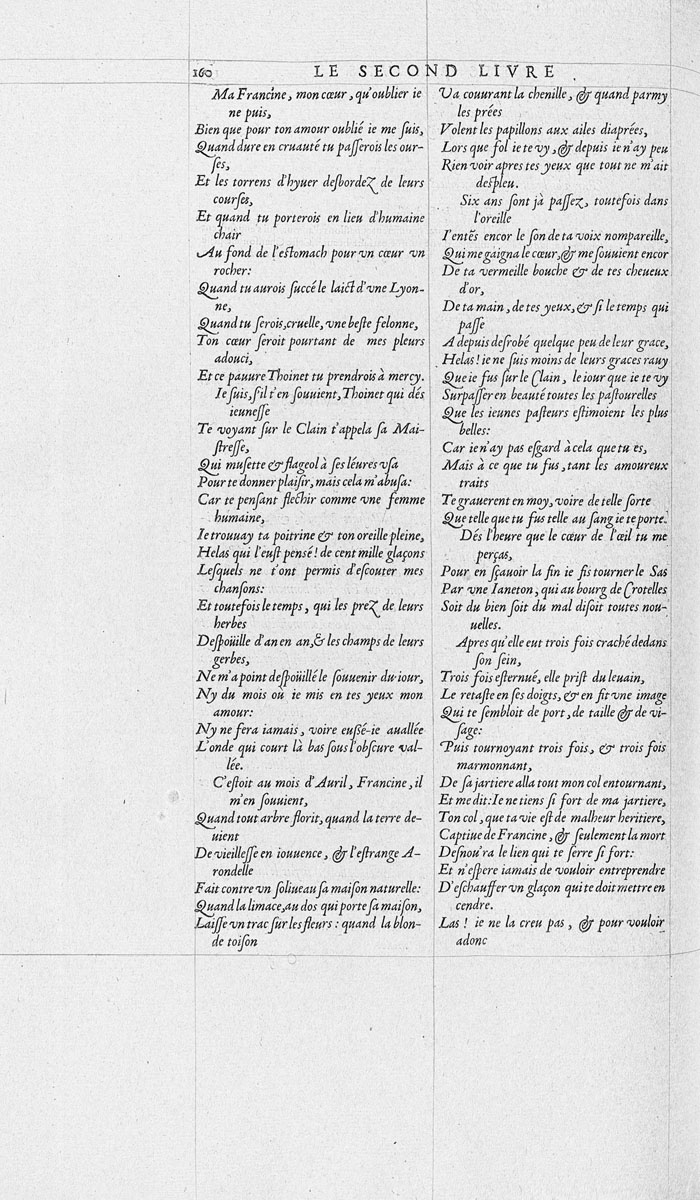 160
LE SECOND LIVRE
Ma Francine, mon cœur, qu'oublier ie
ne puis,
Bien que pour ton amour oublié ie me ſuis,
Quand dure en cruauté tu paſſerois les our-
ſes,
Et les torrens d'hyuer deſbordez de leurs
courſes,
Et quand tu porterois en lieu d'humaine
chair
Au fond de l'eſtomach pour vn cœur vn
rocher:
Quand tu aurois ſuccé le laict d'vne Lyon-
ne,
Quand tu ſerois, cruelle, vne beſte felonne,
Ton cœur ſeroit pourtant de mes pleurs
adouci,
Et ce pauure Thoinet tu prendrois à mercy.
Ie ſuis, ſ'il t'en ſouuient, Thoinet qui dés
ieuneſſe
Te voyant ſur le Clain t'appela ſa Mai-
ſtreſſe,
Qui muſette & flageol à ſes léures vſa
Pour te donner plaiſir, mais cela m'abuſa:
Car te penſant flechir comme vne femme
humaine,
Ie trouuay ta poitrine & ton oreille pleine,
Helas qui l'euſt penſé! de cent mille glaçons
Leſquels ne t'ont permis d'eſcouter mes
chanſons:
Et toutefois le temps, qui les prez de leurs
herbes
Deſpoüille d'an en an, & les champs de leurs
gerbes,
Ne m'a point deſpoüillé le ſouuenir du iour,
Ny du mois où ie mis en tes yeux mon
amour:
Ny ne fera iamais, voire euſſé-ie auallée
L'onde qui court là bas ſous l'obſcure val-
lée.
C'eſtoit au mois d'Auril, Francine, il
m'en ſouuient,
Quand tout arbre florit, quand la terre de-
uient
De vieilleſſe en iouuence, & l'eſtrange A-
rondelle
Fait contre vn ſoliueau ſa maiſon naturelle:
Quand la limace, au dos qui porte ſa maiſon,
Laiſſe vn trac ſur les fleurs: quand la blon-
de toiſon
Va couurant la chenille, & quand parmy
les prées
Volent les papillons aux ailes diaprées,
Lors que fol ie te vy, & depuis ie n'ay peu
Rien voir apres tes yeux que tout ne m'ait
deſpleu.
Six ans ſont jà paſſez, toutefois dans
l'oreille
I'entēs encor le ſon de ta voix nompareille,
Qui me gaigna le cœur, & me ſouuient encor
De ta vermeille bouche & de tes cheueux
d'or,
De ta main, de tes yeux, & ſi le temps qui
paſſe
A depuis deſrobé quelque peu de leur grace,
Helas! ie ne ſuis moins de leurs graces rauy
Que ie fus ſur le Clain, le iour que ie te vy
Surpaſſer en beauté toutes les paſtourelles
Que les ieunes paſteurs eſtimoient les plus
belles:
Car ie n'ay pas eſgard à cela que tu es,
Mais à ce que tu fus, tant les amoureux
traits
Te grauerent en moy, voire de telle ſorte
Que telle que tu fus telle au ſang ie te porte.
Dés l'heure que le cœur de l'œil tu me
perças,
Pour en ſçauoir la fin ie fis tourner le Sas
Par vne Ianeton, qui au bourg de Crotelles
Soit du bien ſoit du mal diſoit toutes nou-
uelles.
Apres qu'elle eut trois fois craché dedans
ſon ſein,
Trois fois eſternué, elle priſt du leuain,
Le retaſte en ſes doigts, & en fit vne image
Qui te ſembloit de port, de taille & de vi-
ſage:
Puis tournoyant trois fois, & trois fois
marmonnant,
De ſa jartiere alla tout mon col entournant,
Et me dit: Ie ne tiens ſi fort de ma jartiere,
Ton col, que ta vie eſt de malheur heritiere,
Captiue de Francine, & ſeulement la mort
Deſnou'ra le lien qui te ſerre ſi fort:
Et n'eſpere iamais de vouloir entreprendre
D'eſchauffer vn glaçon qui te doit mettre en
cendre.
Las! ie ne la creu pas, & pour vouloir
adonc